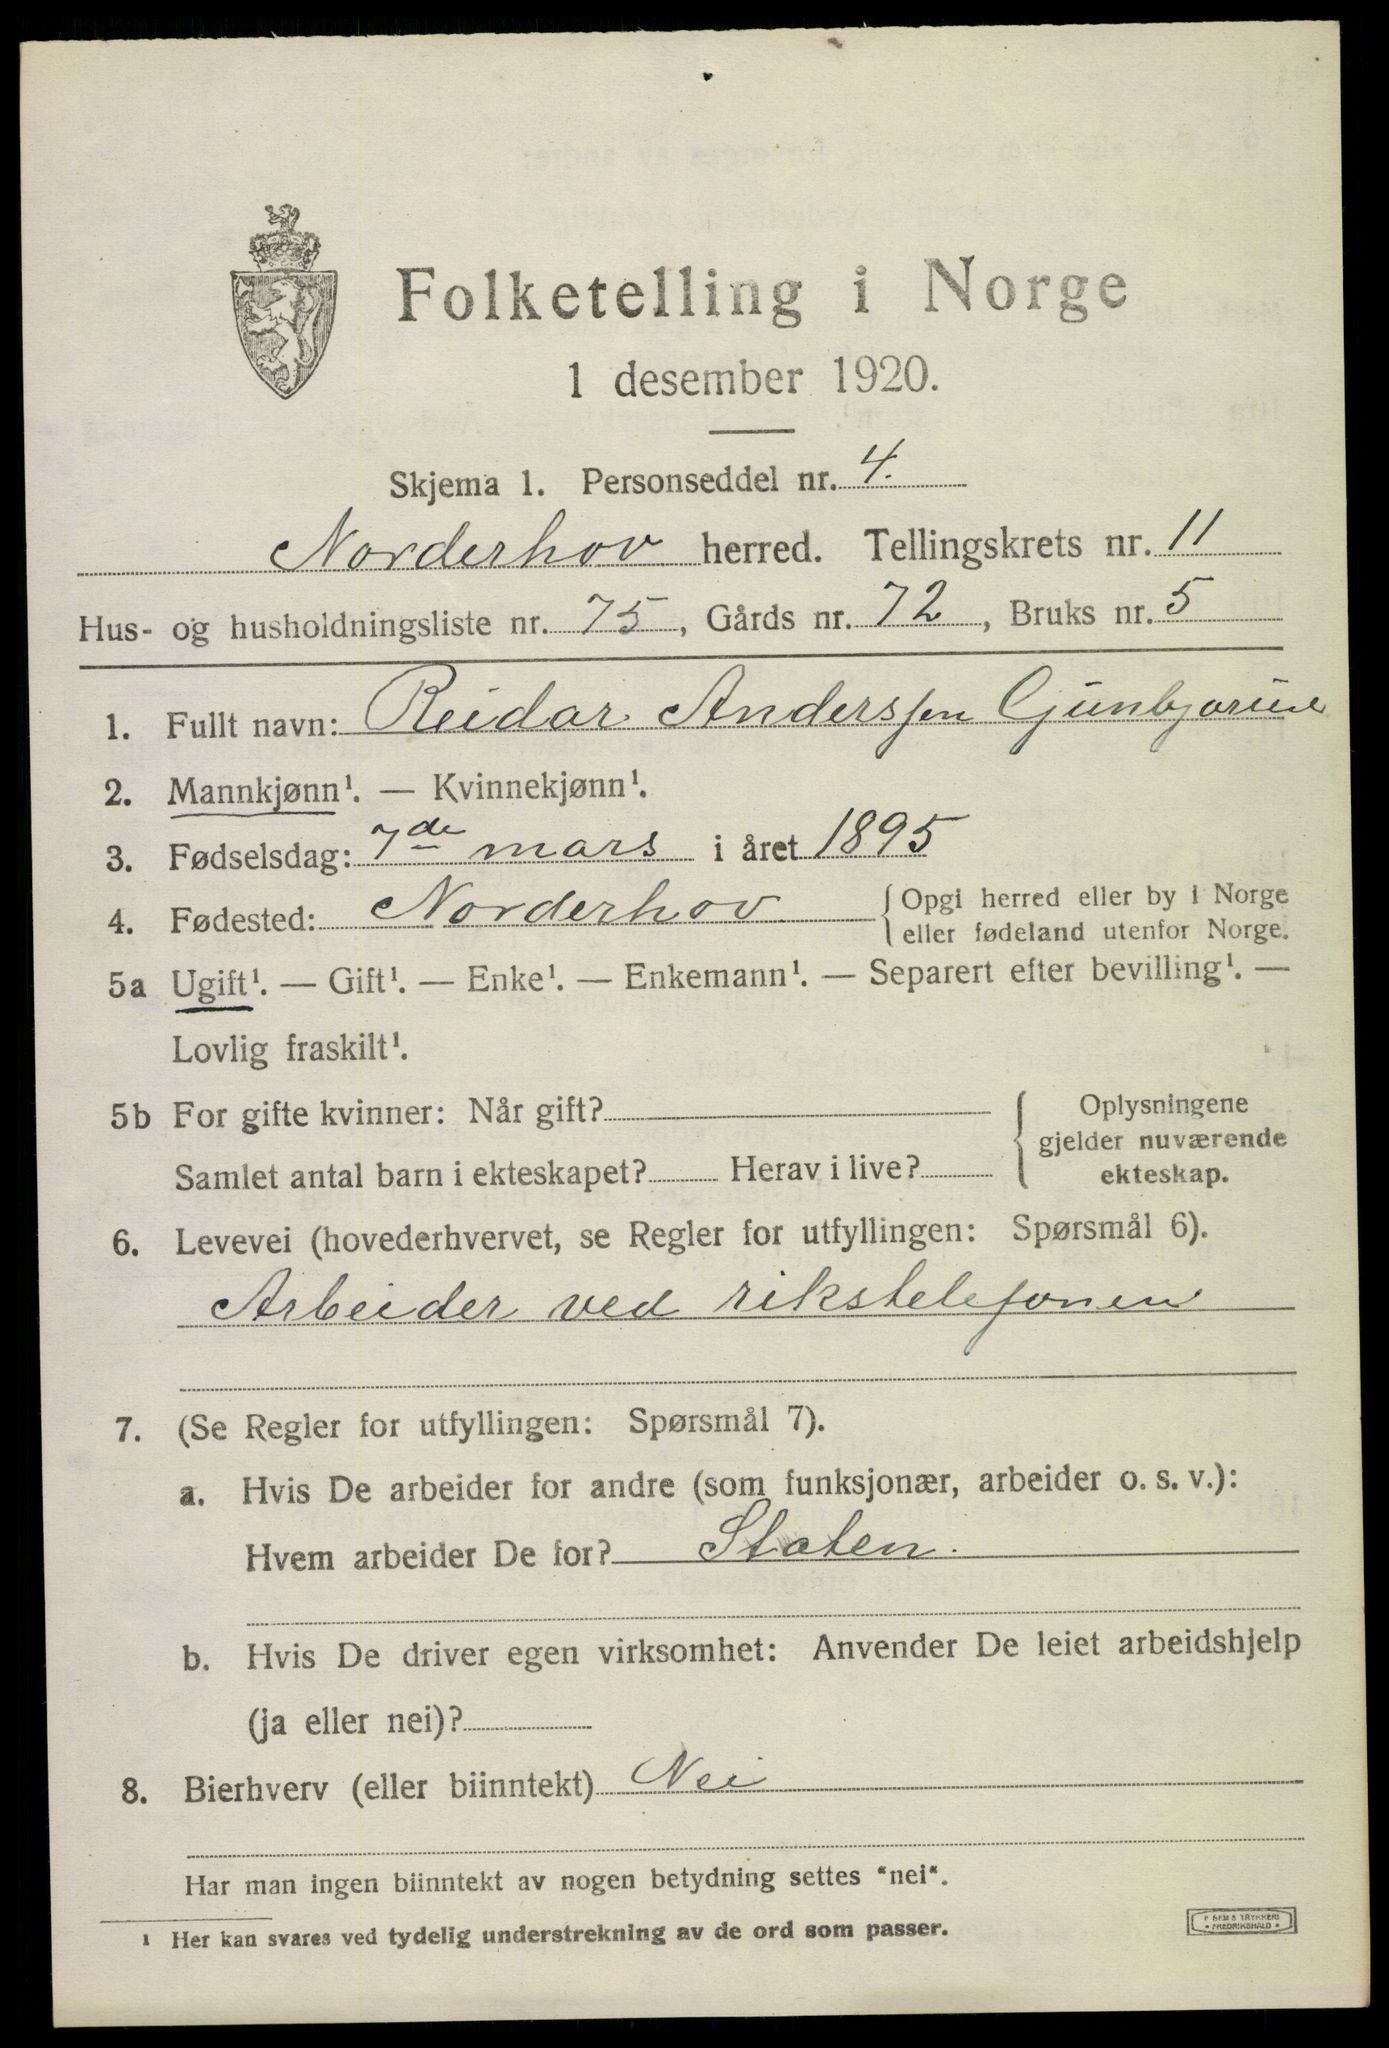 Folketelling i Norge
1 desember 1920.
Skjema 1. Personseddel nr. 4.
Norderhov herred. Tellingskrets nr. 11
Hus- og husholdningsliste nr. 75, Gårds nr. 72, Bruks nr. 5
1. Fullt navn: Reidar Anderssen
2. Mannkjønn¹. — Kvinnekjønn¹.
3. Fødselsdag: 7de mars i året 1895
4. Fødested: Norderhov {Opgi herred eller by i Norge
eller fødeland utenfor Norge.
5a Ugift¹. — Gift¹. — Enke¹. — Enkemann¹. — Separert efter bevilling¹. —
Lovlig fraskilt¹.
5b For gifte kvinner: Når gift?
Samlet antal barn i ekteskapet? Herav i live?
{Oplysningene
gjelder nuværende
ekteskap.
6. Levevei (hovederhvervet, se Regler for utfyllingen: Spørsmål 6).
Arbeider ved rikstelefonen
7. (Se Regler for utfyllingen: Spørsmål 7).
a. Hvis De arbeider for andre (som funksjonær, arbeider o. s. v.):
Hvem arbeider De for? Staten.
b. Hvis De driver egen virksomhet: Anvender De leiet arbeidshjelp
(ja eller nei)?
8. Bierhverv (eller biinntekt) Nei
Har man ingen biinntekt av nogen betydning settes "nei".
¹ Her kan svares ved tydelig understrekning av de ord som passer.
P. SEM S TRYKKERI
* FREDRIKSHALD *